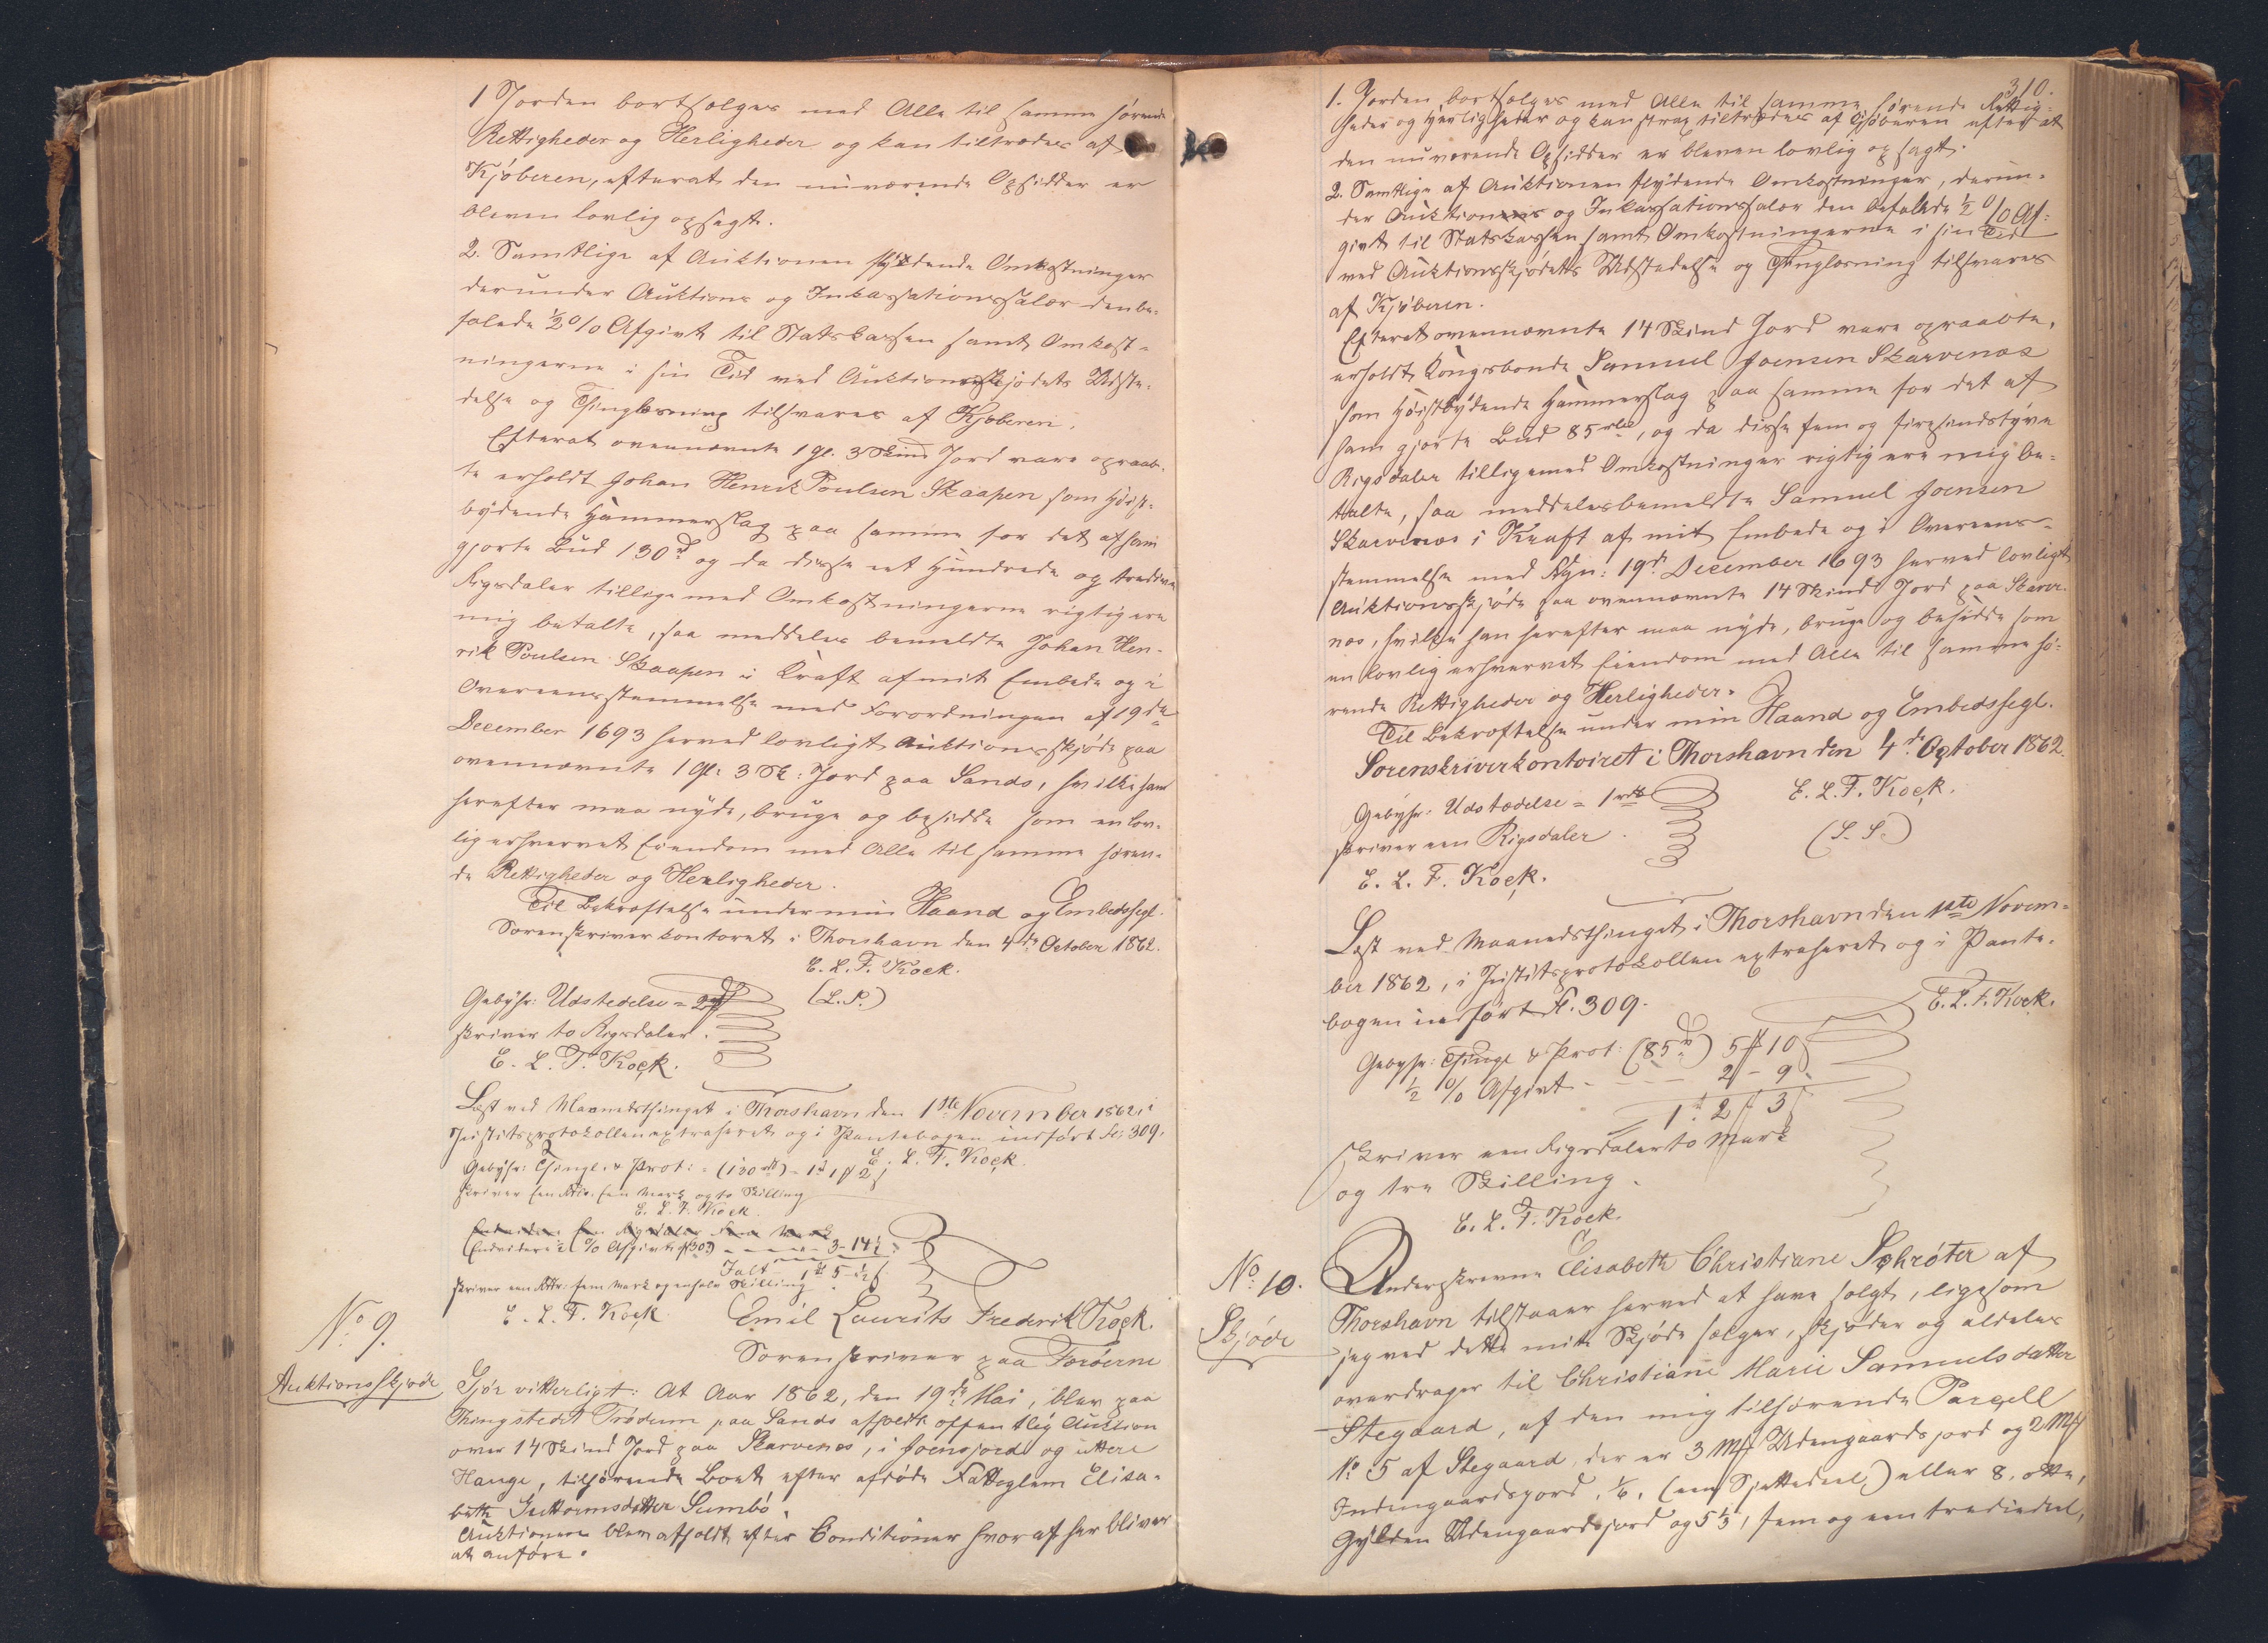 1 Jorden bortsælges med Alle til samme hørende
Rettigheder og Herligheder og kan tiltrædes af
Kjøberen, efterat den nuværende Opsidder er
bleven lovlig opsagt.
2. Samtlige af Auktionen flydende Omkostninger
derunder Auktions og Inkassationssalær den be-
falede ½ % Afgivt til Statskassen samt Omkost-
ningerne i sin Tid med Auktionsskjødets Udste-
delse og Thinglæsning tilsvares af Kjøberen.
Efterat ovennævnte 1 Gl. 3 Skind Jord vare opraab-
te erholdt Johan Henrik Poulsen Skaapen som Høist-
bydende Hammerslag paa samme for det af ham
gjorte Bud 130 rd og da disse et Hundrede og tredive
Rigsdaler tilligemed Omkostningerne rigtig ere
mig betalte, saa meddeles bemeldte Johan Hen-
rik Poulsen Skaapen i Kraft af mit Embede og i
Overeensstemmelse med Forordningen af 19de
December 1693 herved lovligt Auktionsskjøde paa
ovennævnte 1 Gl: 3 Sk: Jord paa Sands, hvilke han
herefter maa nyde, bruge og besidde som en lov-
lig erhvervet Eiendom med Alle til samme høren-
de Rettigheder og Herligheder.
Til Bekræftelse under min Haand og Embedssegl.
Sorenskriverkontoret i Thorshavn den 4de October 1862.
E. L. F. Kock.
(L. S.)
Gebyhr: Udstedelse = 2 rd
skriver to Rigsdaler.
E. L. F. Kock.
Læst ved Maanedsthinget i Thorshavn den 1ste November 1862, i
Justitsprotokollen extraheret og i Pantebogen indført Fol. 309.
E. L. F. Kock.
Gebyhr: Thingl. & Prot: = (130 rd) = 1 rd 1 ℳ 2 ß
skriver Een Rdlr. Een Mark og to Skilling
E. L. F. Kock.
Endvidere ½ % Afgivt af 130 rd - - - - 3 - 14½
Ialt 1 rd 5 - ½ ß
skriver een Rdlr: fem Mark og en halv Skilling
E. L. F. Kock
No 9.
Auktionsskjøde
Emil Laurits Frederik Kock.
Sorenskriver paa Færøerne
Gjør vitterligt: At Aar 1862, den 19de Mai, blev paa
Thingstedet Trødum paa Sandø afholdt offentlig Auktion
over 14 Skind Jord paa Skarvenæs, i Joensjord og uttere
Hauge, tilhørende Boet efter afdøde Fatteglem Elisa-
beth Guttormsdatter Sumbø.
Auktionen blev afholdt efter Conditioner hvoraf her bliver
at anføre.
310.
1. Jorden bortsælges med Alle til samme hørende Rettig-
heder og Herligheder og kan strax tiltrædes af Kjøberen efterat
den nuværende Opsidder er bleven lovlig opsagt.
2. Samtlige af Auktionen flydende Omkostninger, derun-
der Auktions og Inkassationssalær den befalede ½ % Af-
givt til Statskassen samt Omkostningerne i sin Tid
med Auktionsskjødets Udstedelse og Thinglæsning tilsvares
af Kjøberen.
Efterat ovennævnte 14 Skind Jord vare opraabte,
erholdt Kongsbonde Samuel Joensen Skarvenæs
som Høistbydende Hammerslag paa samme for det af
ham gjorte Bud 85 rd, og da disse fem og firesindstyve
Rigsdaler tilligemed Omkostninger rigtig ere mig be-
talte, saa meddeles bemeldte Samuel Joensen
Skarvenæs i Kraft af mit Embede og i Overeens-
stemmelse med Fdgn: 19de December 1693 herved lovligt
Auktionsskjøde paa ovennævnte 14 Skind Jord paa Skarve-
næs, hvilke han herefter maa nyde, bruge og besidde som
en lovlig erhvervet Eiendom med Alle til samme hø-
rende Rettigheder og Herligheder.
Til Bekræftelse under min Haand og Embedssegl.
Sorenskriverkontoiret i Thorshavn den 4de October 1862.
E. L. F. Kock.
(L. S.)
Gebyhr: Udstædelse = 1 rd
skriver een Rigsdaler.
E. L. F. Kock.
Læst ved Maanedsthinget i Thorshavn den 1ste Novem-
ber 1862, i Justitsprotokollen extraheret og i Pante-
bogen indført Fl. 309.
E. L. F. Kock.
Gebyhr: Thingl & Prot: (85 rd) 5 ℳ 10 ß
½ % Afgivt - - - - 2 - 9
1 rd 2 ℳ 3 ß
skriver een Rigsdaler to Mark
og tre Skilling.
E. L. F. Kock.
No 10.
Skjøde
Underskrevne Elisabeth Christiane Schrøter af
Thorshavn tilstaaer herved at have solgt, ligesom
jeg ved dette mit Skjøde sælger, skjøder og aldeles
overdrager til Christiane Marie Samuelsdatter
Stegaard, af den mig tilhørende Parcell
No 5 af Stegaard, der er 3 Mk Udengaardsjord og 2 Mk
Indengaardsjord, ⅙, (een Sjettedeel) eller 8, otte,
Gylden Udengaardsjord og 5⅓, fem og een trediedeel,